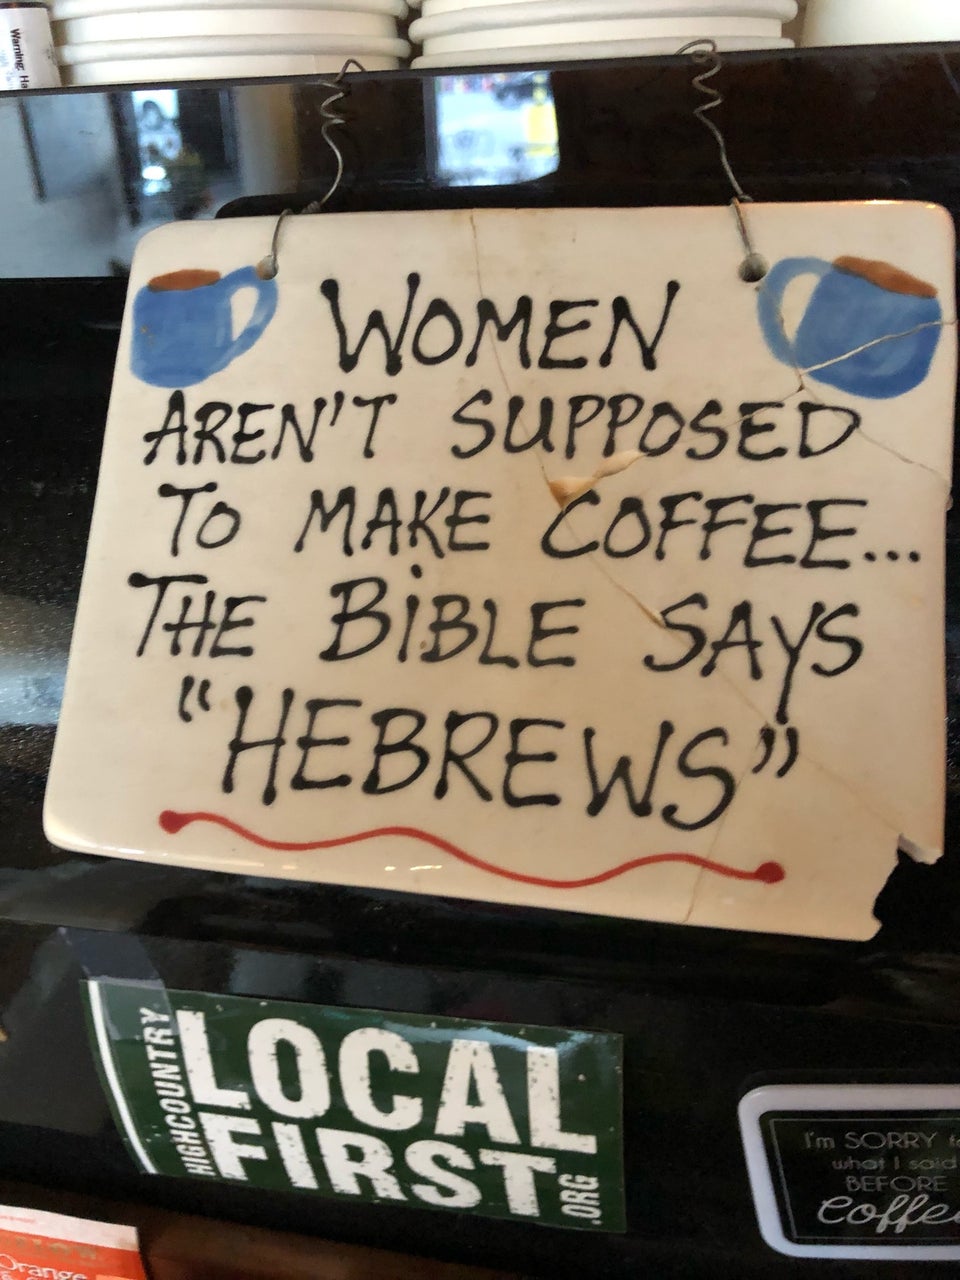 Warning: Ha
WOMEN
AREN'T SUPPOSED
TO MAKE COFFEE...
THE BIBLE SAYS
"HEBREWS"
HIGHCOUNTRY
LOCAL
FIRST
.ORG
I'm SORRY
what I said
BEFORE
Coffe
Orange